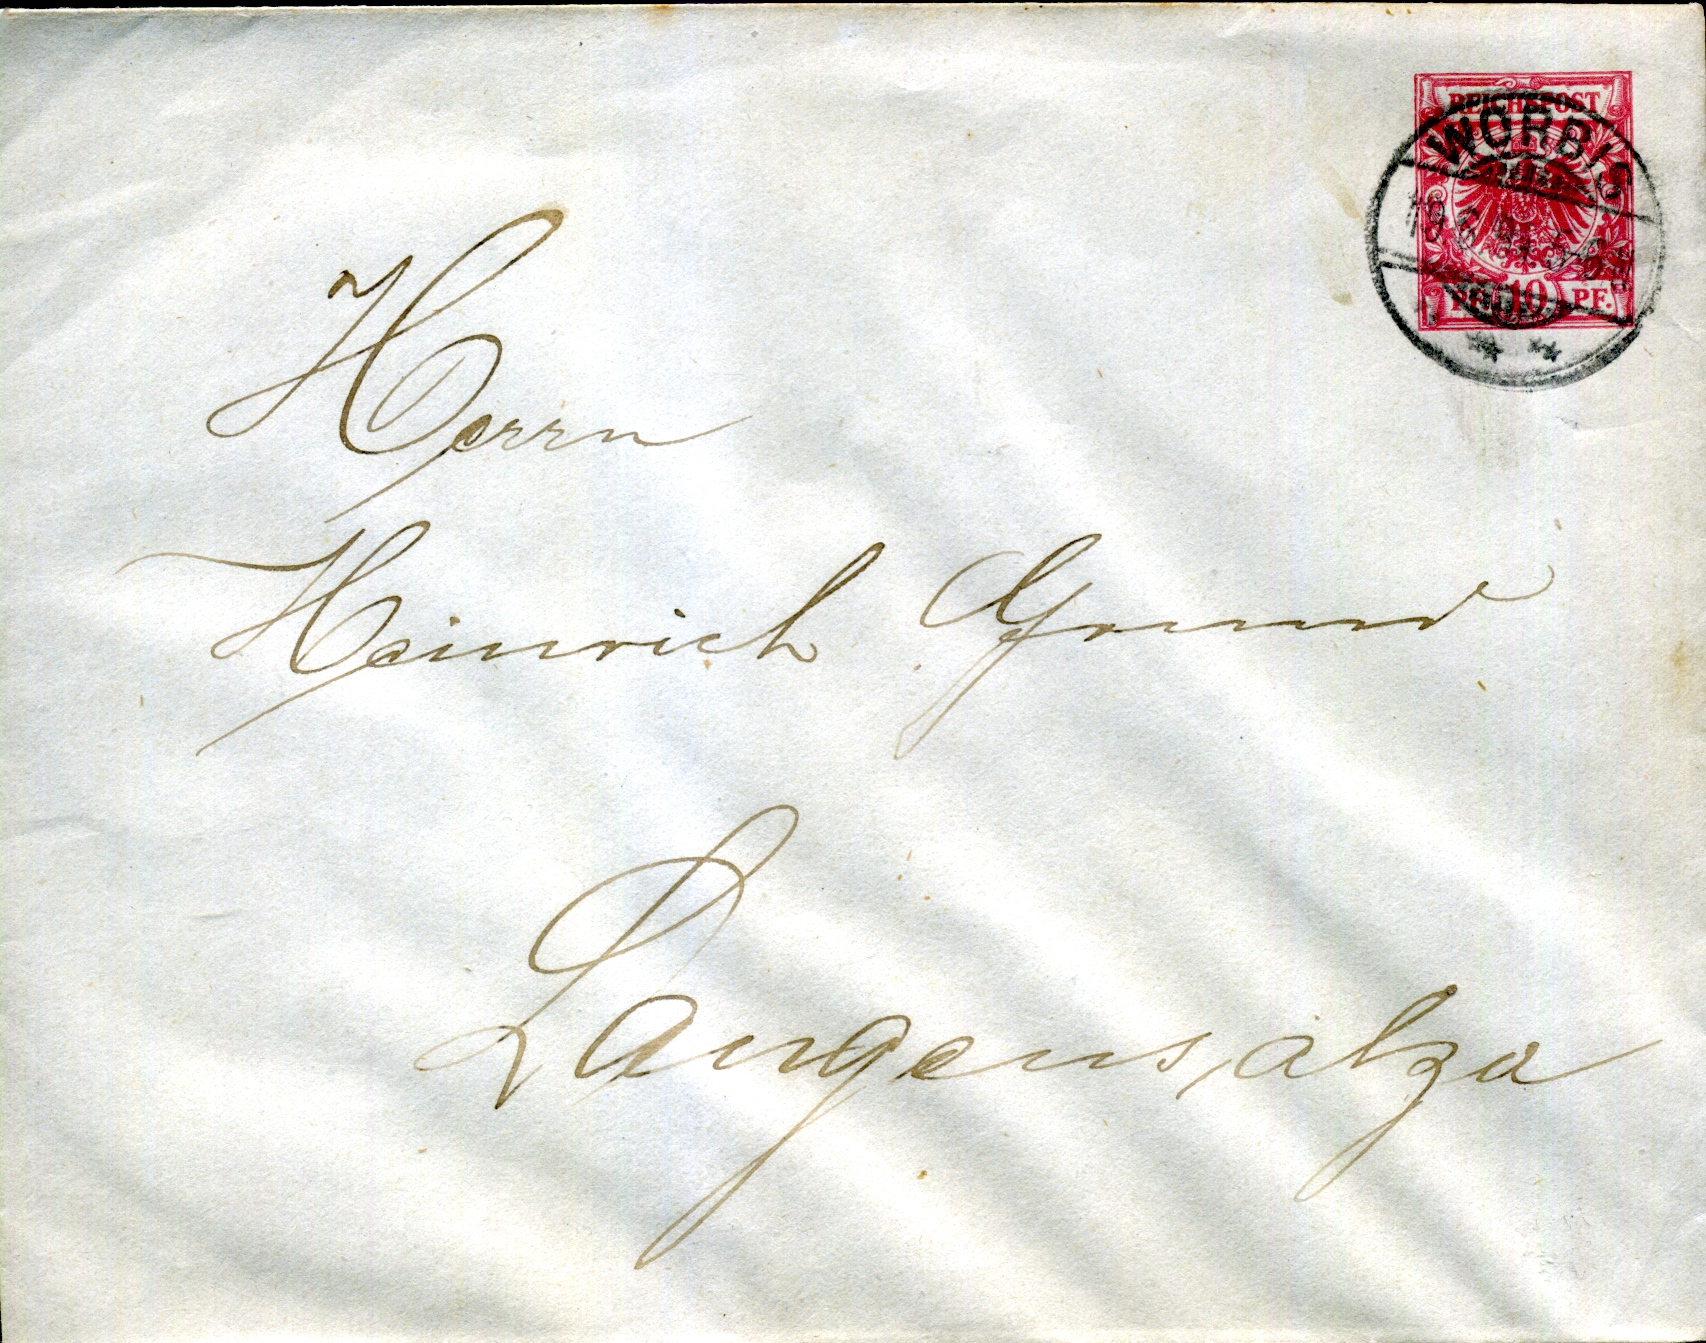 REICHSPOST
WORBIS
19 6
PF. 10 PF.
Herrn
Heinrich Grund
Langensalza